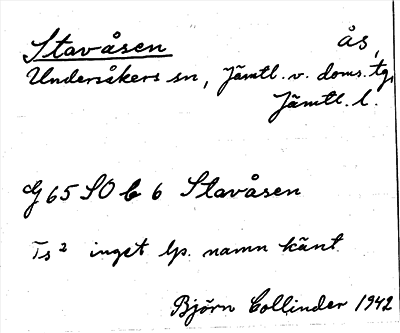 Stavåsen ås,
Undersåkers sn, Jämtl. v. doms. tg,
Jämtl. l.
G 65 SO b 6 Stavåsen
Ts² inget lp. namn känt
Björn Collinder 1942